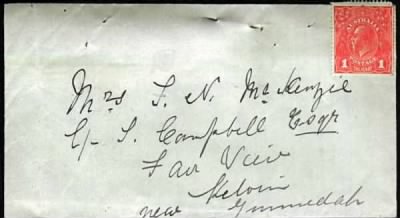 AUSTRALIA
POSTAGE
1 1
Mrs F. N. McKenzie
C/- S. Campbell Esqr
Fair View
Kelvin
near Gunnedah